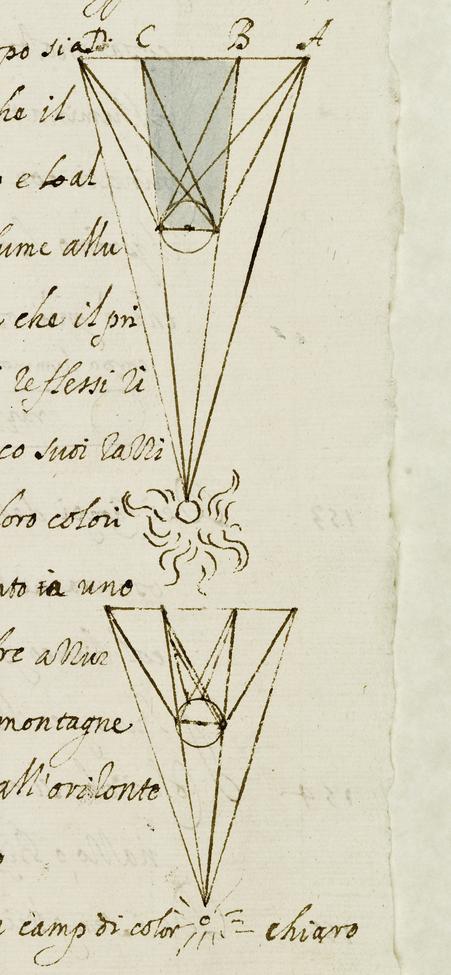 D C B A
po sia
he il
e loal
lume allu
che il pri
reflessi di
co suoi razzi
loro colori
to in uno
re
montagne
all'orizonte
camp di color chiaro